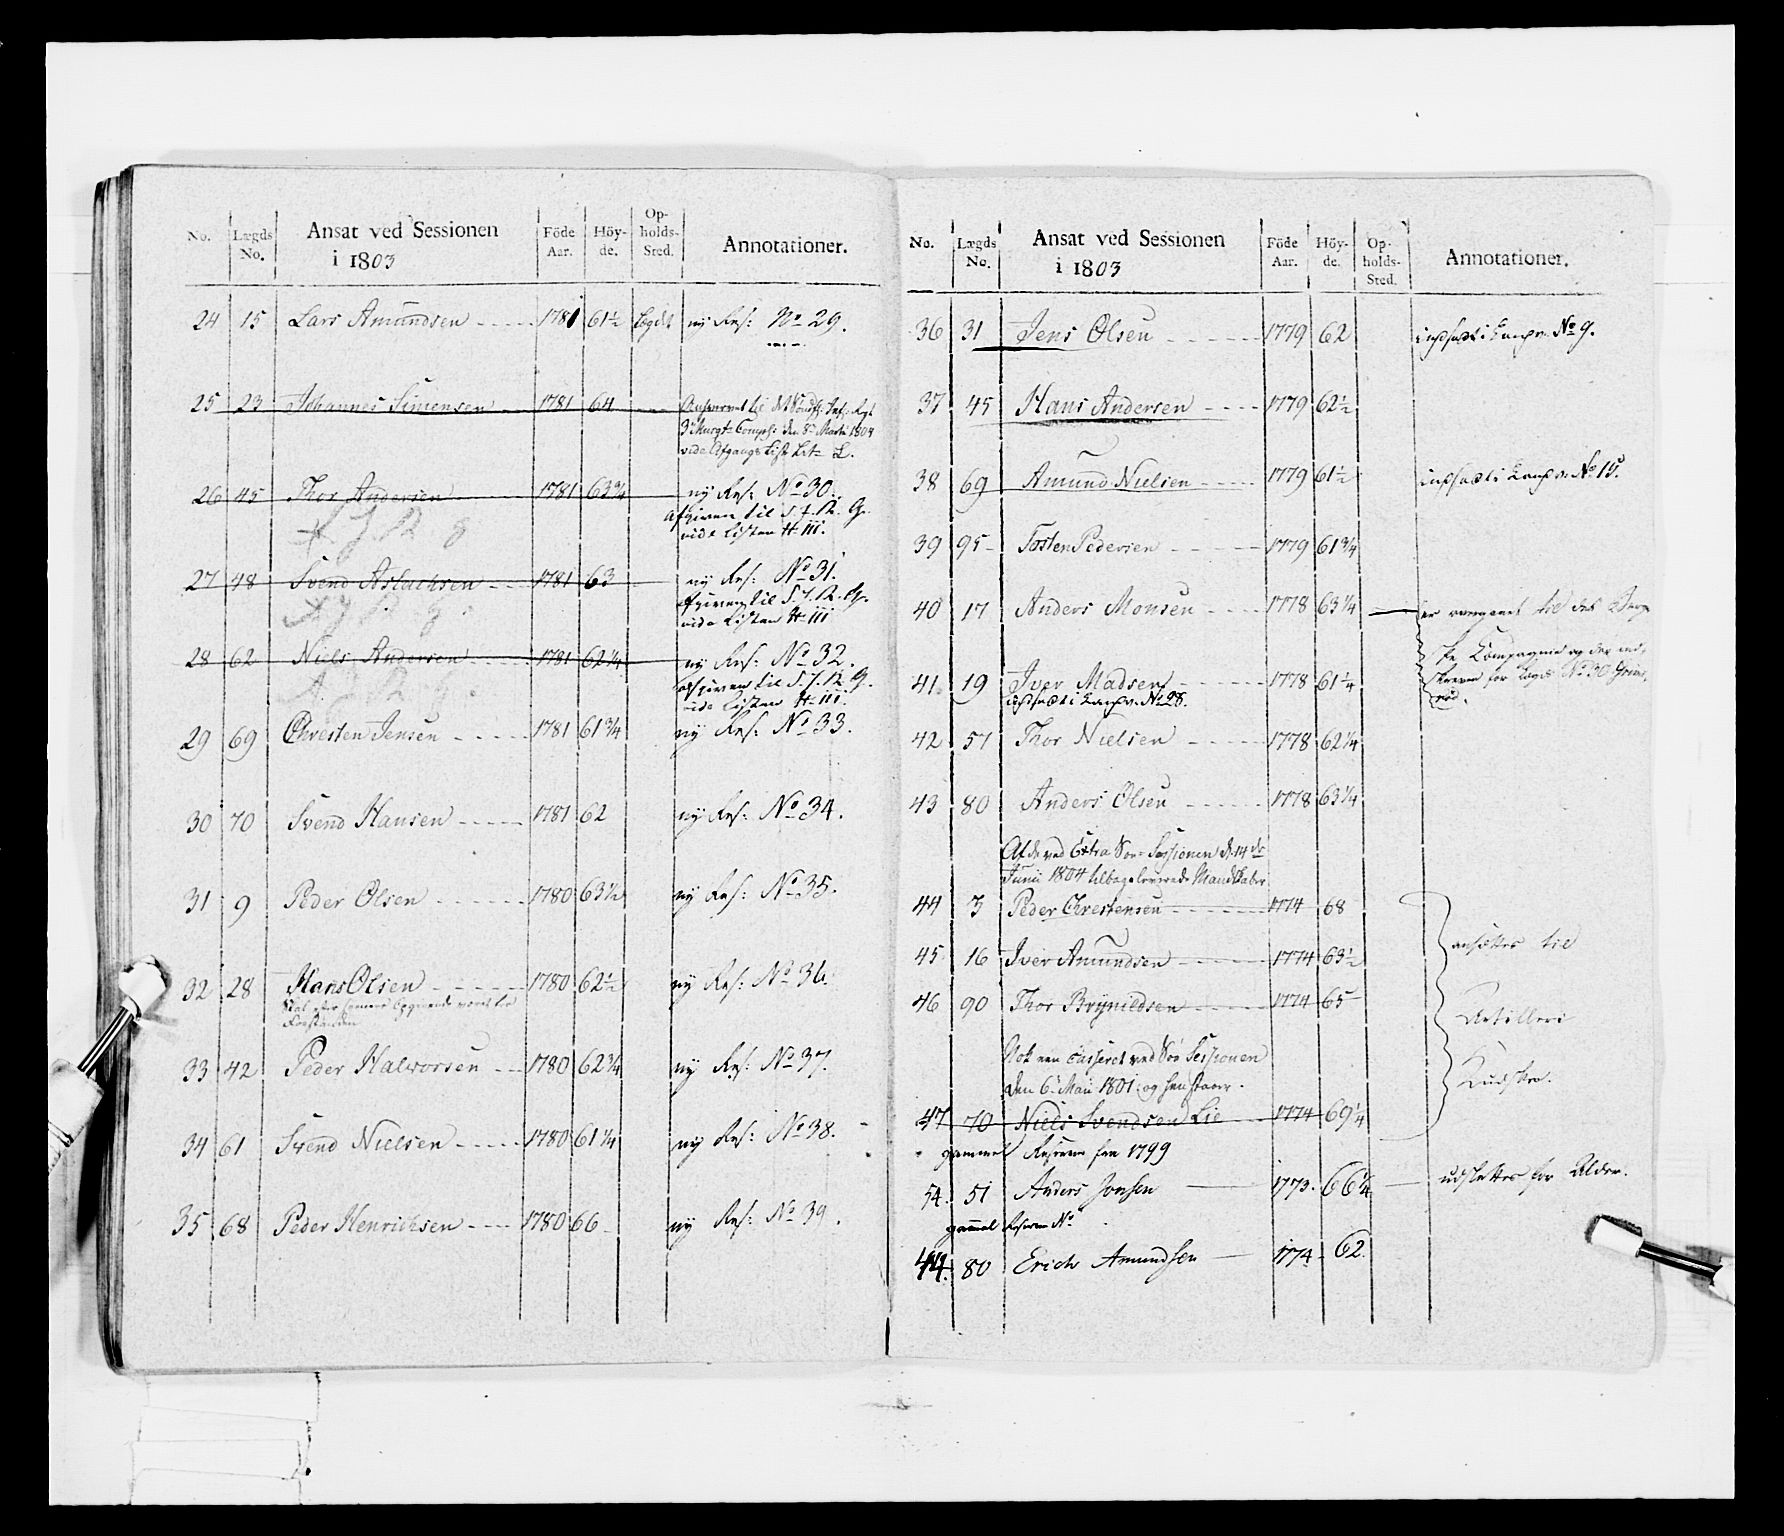 No. Lægds No. Ansat ved Sessionen i 1803 Föde Aar. Höyde. Opholds-Sted. Annotationer.
24 15 Lars Amundsen 1781 61½ bygdt ny Res: No 29.
25 23 Johannes Simensen 1781 64
3 Comp: den 8 Martii 1804
vide Afgangs List Lit:
26 45 Thor Andersen 1781 63¾ ny Res: No 30.
Afgiven til S. J. R. G.
vide Listen
27 48 Svend Aslachsen 1781 63 ny Res: No 31.
Afgiven til S. J. R. G.
vide Listen
28 62 Niels Andersen 1781 62¼ ny Res: No 32.
Afgiven til S. J. R. G.
vide Listen
29 69 Christen Jensen 1781 61¾ ny Res: No 33.
30 70 Svend Hansen 1781 62 ny Res: No 34.
31 9 Peder Olsen 1780 63½ ny Res: No 35.
32 28 Hans Olsen 1780 62½ ny Res: No 36.
33 42 Peder Halvorsen 1780 62¾ ny Res: No 37.
34 61 Svend Nielsen 1780 61¼ ny Res: No 38.
35 68 Peder Henrichsen 1780 66 ny Res: No 39.
No. Lægds No. Ansat ved Sessionen i 1803 Föde Aar. Höyde. Opholds-Sted. Annotationer.
36 31 Jens Olsen 1779 62 No 9.
37 45 Hans Andersen 1779 62½
38 69 Amund Nielsen 1779 61½ No 15.
39 95 Tosten Pedersen 1779 61¾
40 17 Anders Monsen 1778 63¼ er overgaaet til det Berg
ske Compagnie og der ind-
skreven for Lægd No 30
41. 19 Iver Madsen 1778 61¼
No 28.
42 57 Thor Nielsen 1778 62¼
43 80 Anders Olsen 1778 63¼
Af de ved Extra Søe Sessionen d. 14de
Junii 1804 tilbageleverede Mandskaber
44 3 Peder Christensen 1774 68
45 16 Iver Amundsen 1774 63½ ansættes til
46 90 Thor Brynildsen 1774 65 Artilleri
Nok een casseret ved Søe Sessionen
den 6 Maii 1801 og henstaaer. Kudske.
47 70 Niels Svendsen Lie 1774 69¼
gammel Reserve fra 1799
54. 51 Anders Jonsen 1773. 66¼ udslettes for Alder.
gammel Reserve No
44. 80 Erich Amundsen 1774 62.